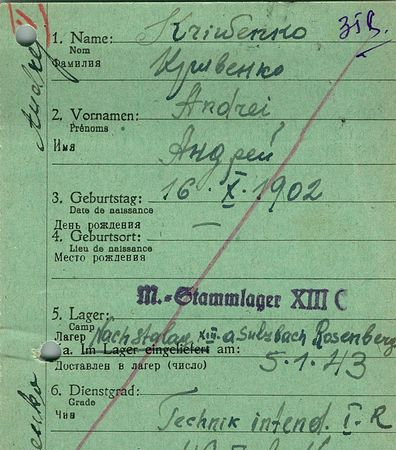 1. Name:
Nom
Фамилия
Kriwenko
Кривенко
31B.
2. Vornamen:
Prénoms
Имя
Andrei
Андрей
3. Geburtstag: 16. X. 1902
Date de naissance
День рождения
4. Geburtsort: —
Lieu de naissance
Место рождения
M.-Stammlager XIII C
5. Lager:
Camp
Лагер
Nach Stalag XIII a Sulzbach Rosenberg
a. Im Lager eingeliefert am: 5.1.43
Доставлен в лагер (число)
6. Dienstgrad:
Grade
Чин
Technik intend. I-R
Andrej
enko